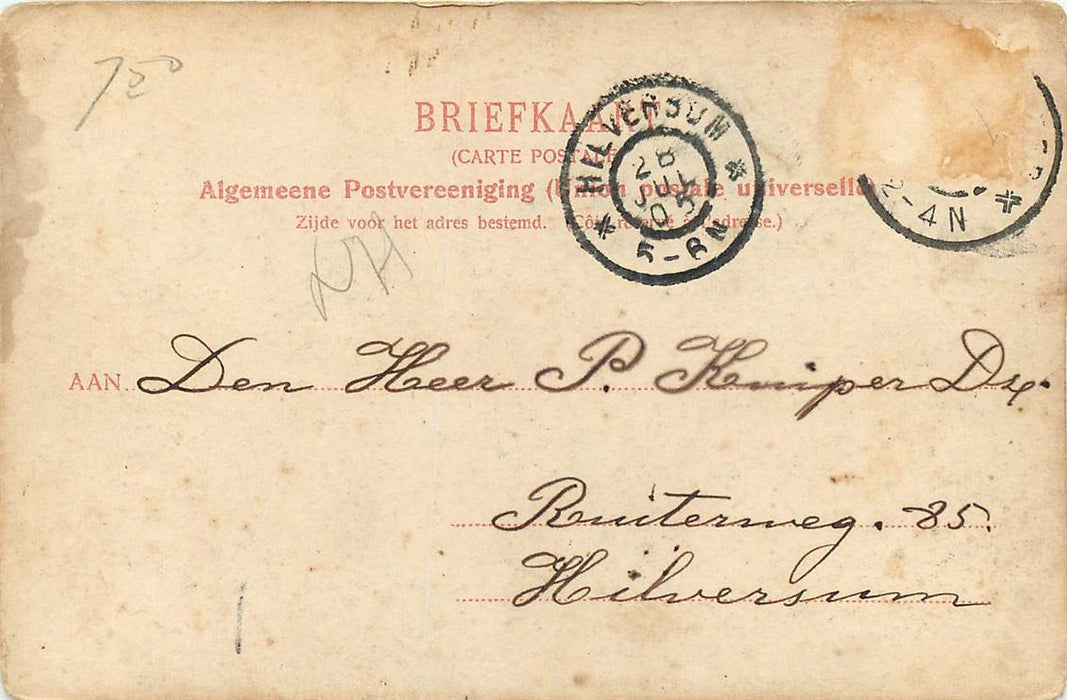 750
BRIEFKAART
(CARTE POSTALE)
Algemeene Postvereeniging (Union postale universelle).
Zijde voor het adres bestemd. (Côté réservé à l'adresse.)
HILVERSUM
28
JUL
5-6N
2-4N
NH
AAN Den Heer P. Kuiper Dz.
Ruiterweg. 85.
Hilversum